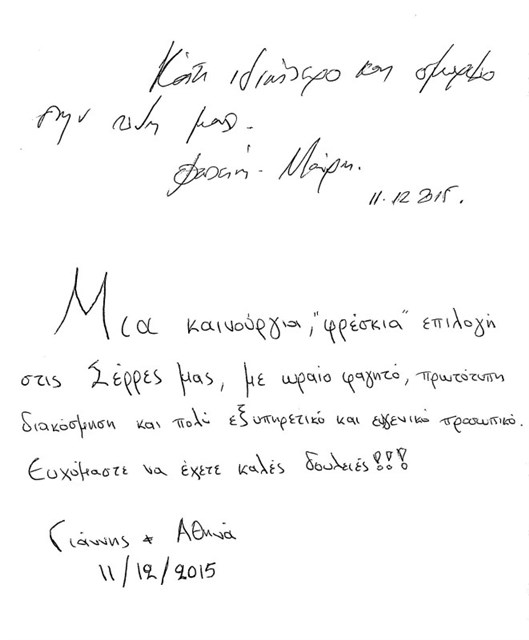 Κάτι ιδιαίτερο και όμορφο
στην πόλη μας.
Φωτεινή - Μαίρη.
11.12.2015.
Μια καινούργια, "φρέσκια" επιλογή
στις Σέρρες μας, με ωραίο φαγητό, πρωτότυπη
διακόσμηση και πολύ εξυπηρετικό και ευγενικό προσωπικό.
Ευχόμαστε να έχετε καλές δουλειές!!!
Γιάννης + Αθηνά
11/12/2015